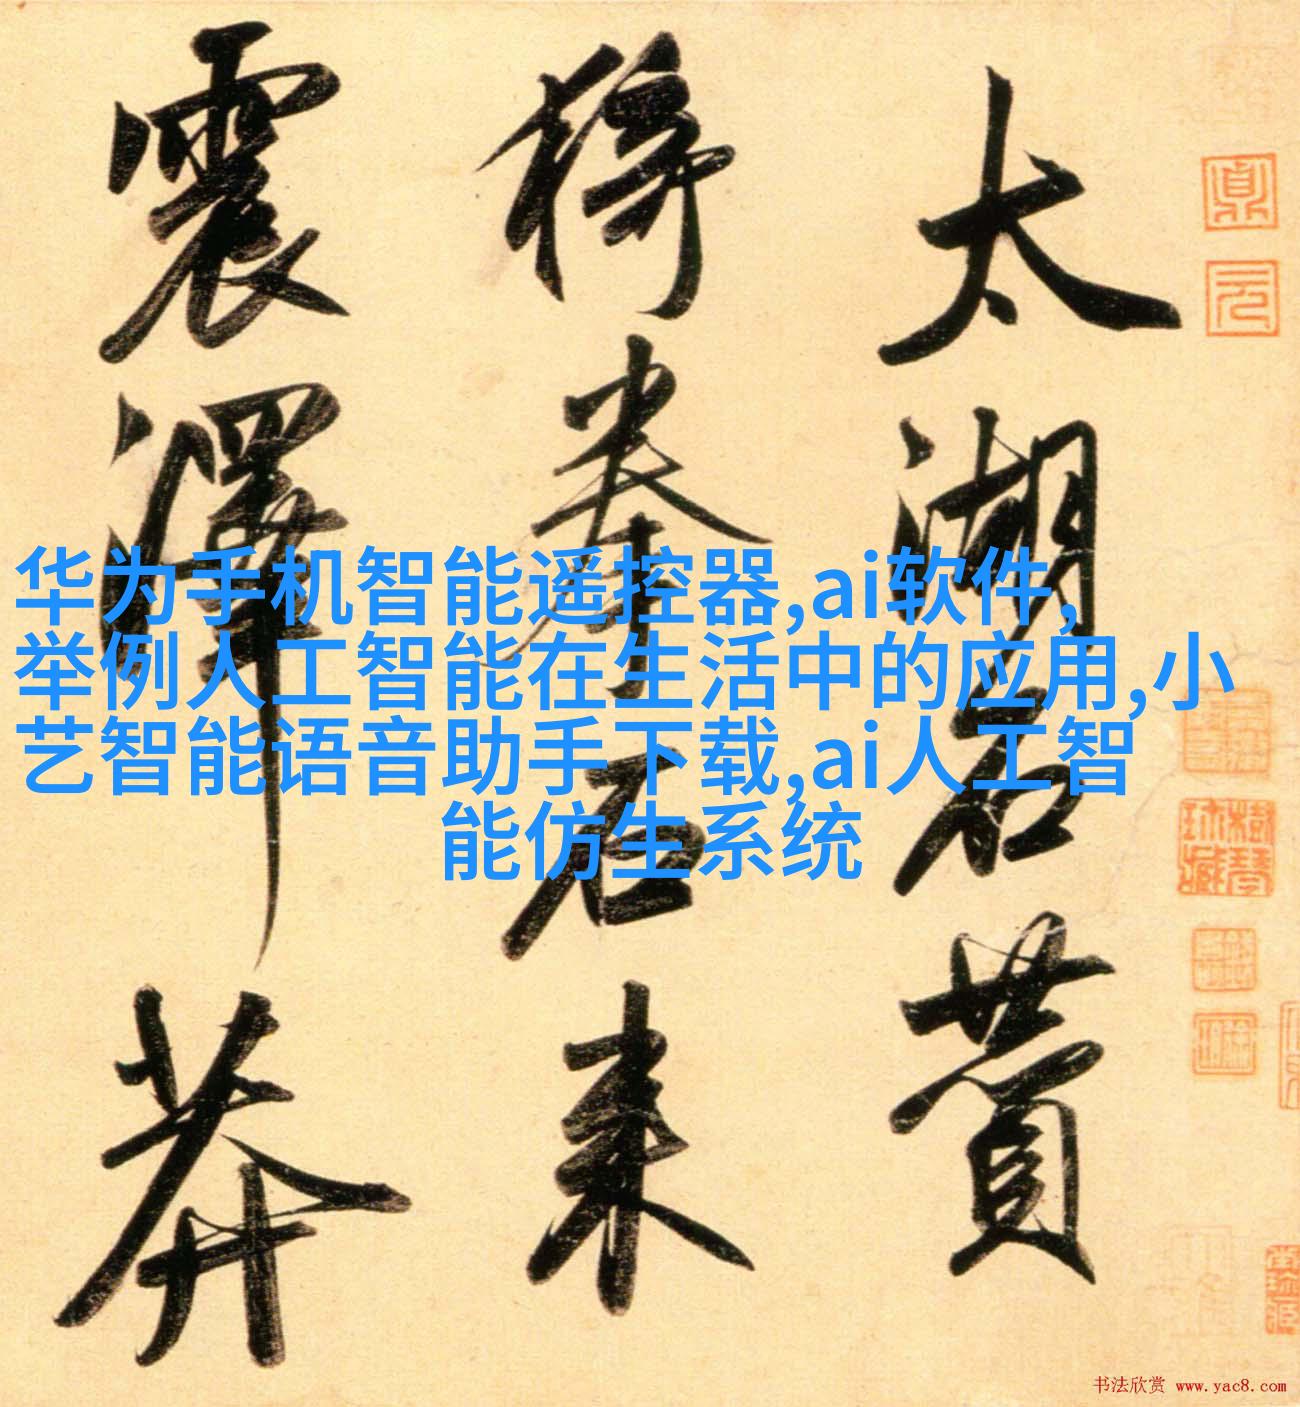 太湖石贊
猗拳石来
震澤莽
华为手机智能遥控器,ai软件,
举例人工智能在生活中的应用,小
艺智能语音助手下载,ai人工智
能仿生系统
书法欣赏 www.yac8.com